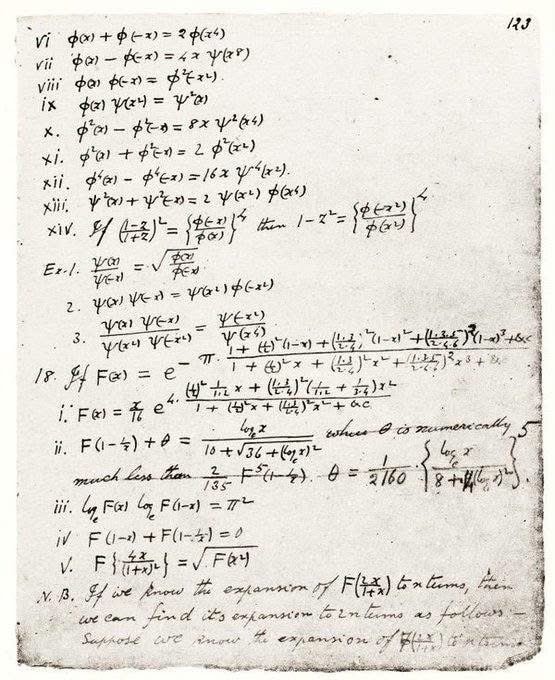 123
vi φ(x) + φ(-x) = 2φ(x⁴)
vii φ(x) - φ(-x) = 4x ψ(x⁸)
viii φ(x) φ(-x) = φ²(-x²).
ix φ(x) ψ(x²) = ψ²(x)
x. φ²(x) - φ²(-x) = 8x ψ²(x⁴)
xi. φ²(x) + φ²(-x) = 2 φ²(x²)
xii. φ⁴(x) - φ⁴(-x) = 16x ψ⁴(x²).
xiii. ψ²(x) + ψ²(-x) = 2 ψ(x²) φ(x⁴)
xiv. If ((1-z)/(1+z))² = {φ(-x)/φ(x)}⁴ then 1-z² = {φ(-x²)/φ(x²)}⁴
Ex. 1. ψ(x)/ψ(-x) = √(φ(x)/φ(-x))
2. ψ(x) ψ(-x) = ψ(x²) φ(-x²)
3. ψ(x) ψ(-x)/(ψ(x²) ψ(-x²)) = ψ(-x²)/ψ(x⁴)
18. If F(x) = e^(-π · (1 + (1/2)²(1-x) + (1·3/2·4)²(1-x)² + (1·3·5/2·4·6)²(1-x)³ + &c)/(1 + (1/2)²x + (1·3/2·4)²x² + (1·3·5/2·4·6)²x³ + &c))
i. F(x) = x/16 e^(4 · ((1/2)² 1/1·2 x + (1·3/2·4)²(1/1·2 + 1/3·4)x²)/(1 + (1/2)²x + (1·3/2·4)²x² + &c))
ii. F(1-1/x) + θ = logₑx/(10 + √(36 + (logₑx)²)) where θ is numerically
much less than 2/135 F⁵(1-1/x). θ = 1/2160 · {logₑx/(8 + (logₑx)²)}⁵.
iii. logₑ F(x) logₑ F(1-x) = π²
iv F(1-x) + F(1-1/x) = 0
v. F{4x/(1+x)²} = √F(x²)
N.B. If we know the expansion of F(2x/(1+x)) to n terms, then
we can find its expansion to 2n terms as follows —
Suppose we know the expansion of (2x/(1+x)) to n terms